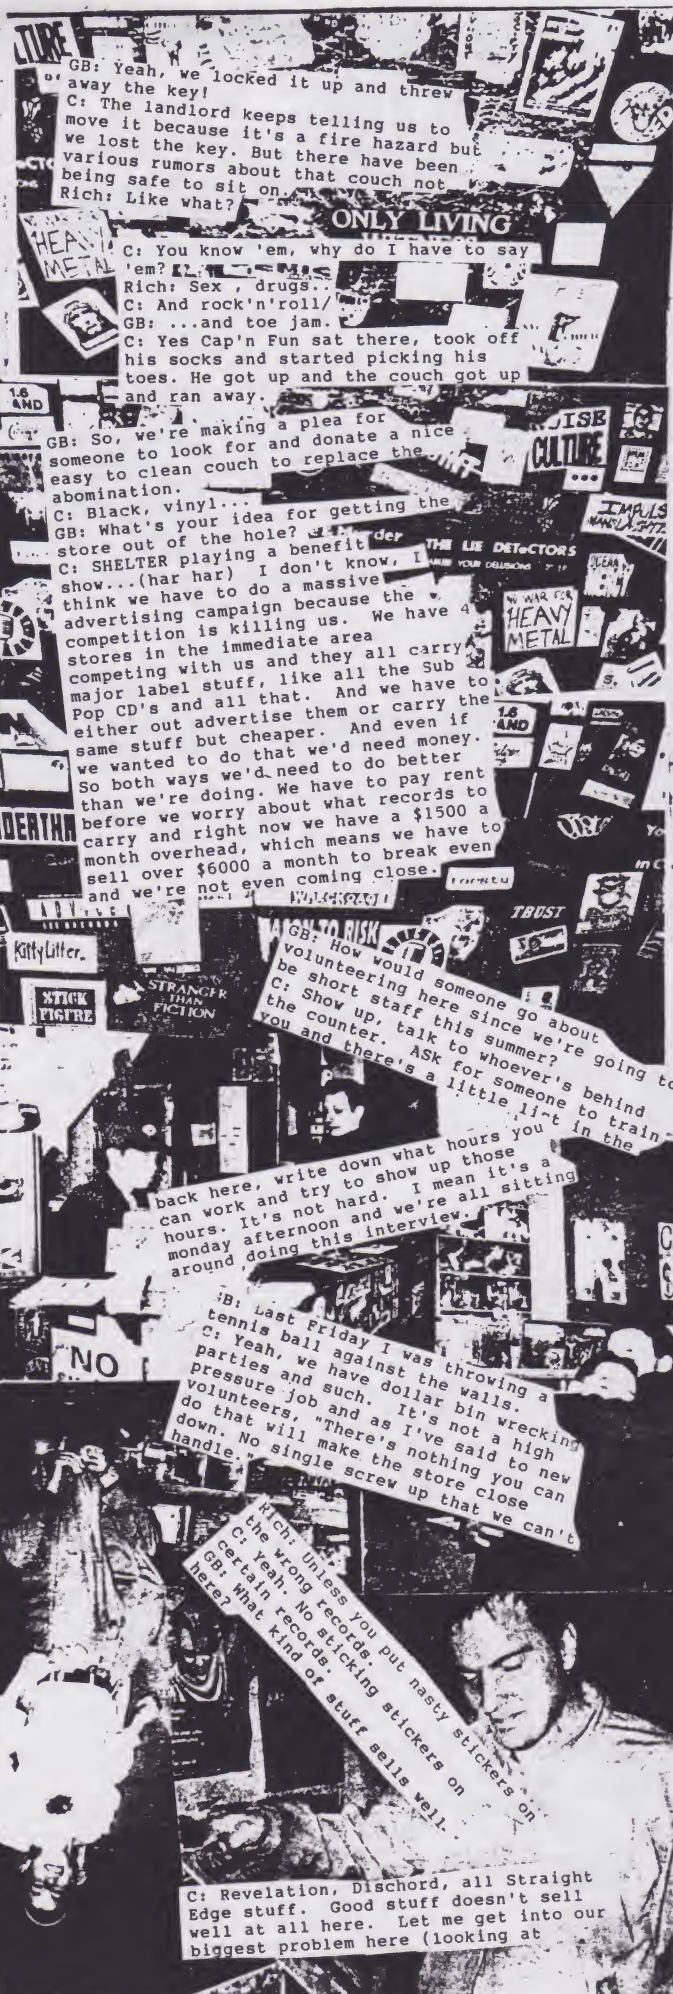 TURE
GB: Yeah, we locked it up and threw
away the key!
C: The landlord keeps telling us to
move it because it's a fire hazard but
we lost the key. But there have been
various rumors about that couch not
being safe to sit on.
Rich: Like what?
ONLY LIVING
HEAVY
METAL
C: You know 'em, why do I have to say
'em?
Rich: Sex , drugs..
C: And rock'n'roll/
GB: ...and toe jam.
C: Yes Cap'n Fun sat there, took off
his socks and started picking his
toes. He got up and the couch got up
and ran away.
1.6
AND
GB: So, we're making a plea for
someone to look for and donate a nice
easy to clean couch to replace the
abomination.
C: Black, vinyl...
GB: What's your idea for getting the
store out of the hole?
C: SHELTER playing a benefit
show...(har har) I don't know, I
think we have to do a massive
advertising campaign because the
competition is killing us. We have 4
stores in the immediate area
competing with us and they all carry
major label stuff, like all the Sub
Pop CD's and all that. And we have to
either out advertise them or carry the
same stuff but cheaper. And even if
we wanted to do that we'd need money.
So both ways we'd need to do better
than we're doing. We have to pay rent
before we worry about what records to
carry and right now we have a $1500 a
month overhead, which means we have to
sell over $6000 a month to break even
and we're not even coming close.
NOISE
CULTURE
THE LIE DETeCTORS
NO WAR FOR
HEAVY
METAL
1.6
AND
DERTHA
TRUST
TO RISK
KittyLitter
STICK
FIGURE
STRANGER
THAN
FICTION
GB: How would someone go about
volunteering here since we're going to
be short staff this summer?
C: Show up, talk to whoever's behind
the counter. ASK for someone to train
you and there's a little list in the
back here, write down what hours you
can work and try to show up those
hours. It's not hard. I mean it's a
monday afternoon and we're all sitting
around doing this interview.
GB: Last Friday I was throwing a
tennis ball against the walls.
C: Yeah, we have dollar bin wrecking
parties and such. It's not a high
pressure job and as I've said to new
volunteers, "There's nothing you can
do that will make the store close
down. No single screw up that we can't
handle."
NO
Rich: Unless you put nasty stickers on
the wrong records.
C: Yeah. No sticking stickers on
certain records.
GB: What kind of stuff sells well
here?
C: Revelation, Dischord, all Straight
Edge stuff. Good stuff doesn't sell
well at all here. Let me get into our
biggest problem here (looking at